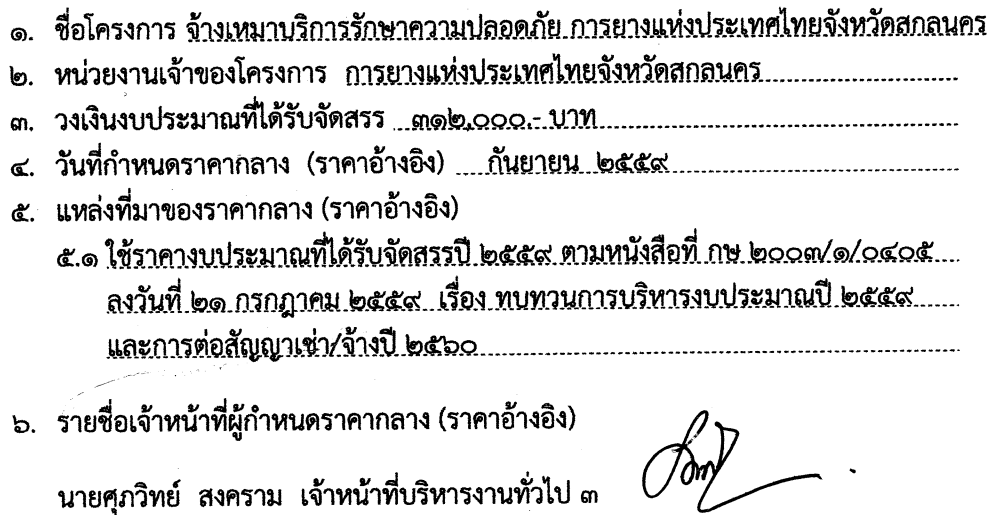 ๑. ชื่อโครงการ จ้างเหมาบริการรักษาความปลอดภัย การยางแห่งประเทศไทยจังหวัดสกลนคร
๒. หน่วยงานเจ้าของโครงการ การยางแห่งประเทศไทยจังหวัดสกลนคร
๓. วงเงินงบประมาณที่ได้รับจัดสรร ๓๑๒,๐๐๐.- บาท
๔. วันที่กำหนดราคากลาง (ราคาอ้างอิง) กันยายน ๒๕๕๙
๕. แหล่งที่มาของราคากลาง (ราคาอ้างอิง)
๕.๑ ใช้ราคางบประมาณที่ได้รับจัดสรรปี ๒๕๕๙ ตามหนังสือที่ กษ ๒๐๐๓/๑/๐๔๐๕
ลงวันที่ ๒๑ กรกฎาคม ๒๕๕๙ เรื่อง ทบทวนการบริหารงบประมาณปี ๒๕๕๙
และการต่อสัญญาเช่า/จ้างปี ๒๕๖๐
๖. รายชื่อเจ้าหน้าที่ผู้กำหนดราคากลาง (ราคาอ้างอิง)
นายศุภวิทย์ สงคราม เจ้าหน้าที่บริหารงานทั่วไป ๓